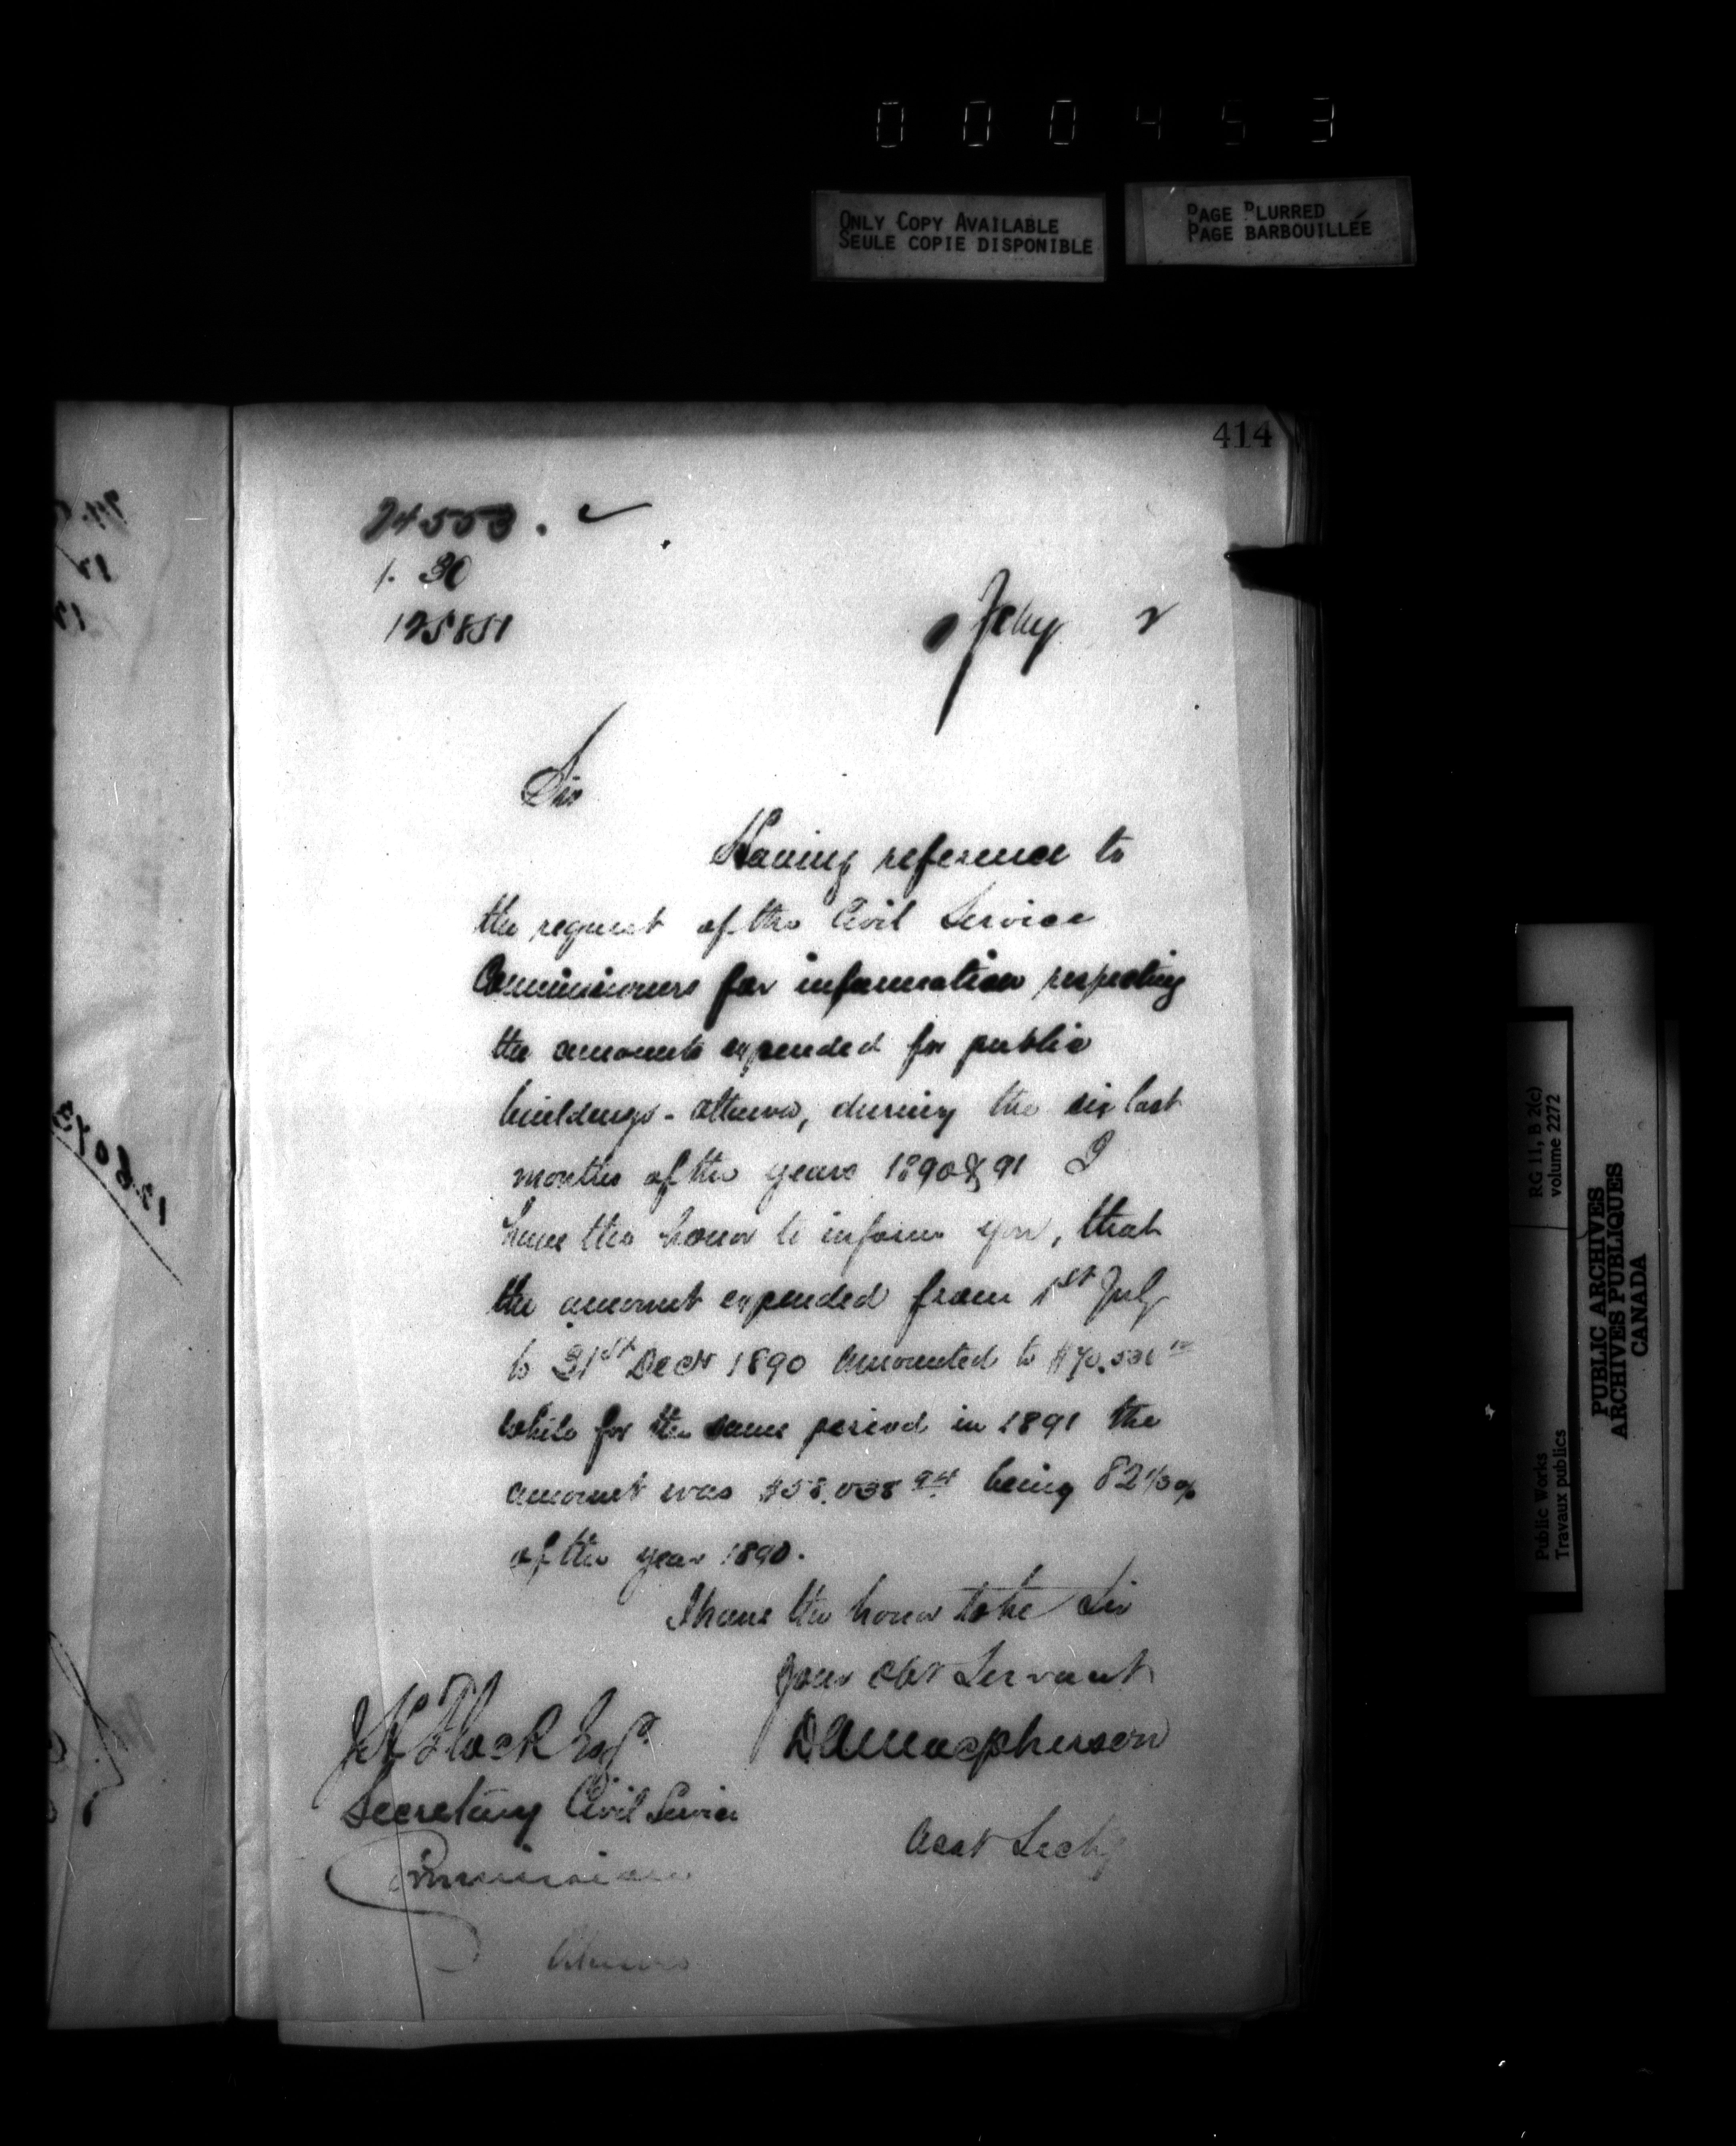 000453
ONLY COPY AVAILABLE
SEULE COPIE DISPONIBLE
PAGE BLURRED
PAGE BARBOUILLÉE
414
24553.
1. 30
125851
Feby 2
Sir
Having reference to
the request of the Civil Service
Commissioners for information respecting
the amounts expended for public
buildings - Ottawa, during the six last
months of the years 1890 & 91 I
have the honor to inform you, that
the amount expended from 1st July
to 31st Decr 1890 amounted to
while for the same period in 1891 the
amount was $58.038 94 being 82 1/3 %
of the year 1890.
I have the honor to be Sir
Your obt Servant
DAMacpherson
Asst Secty
J H Flock Esqr
Secretary Civil Service
Commission
Ottawa
RG 11, B 2(c)
volume 2272
Public Works
Travaux publics
PUBLIC ARCHIVES
ARCHIVES PUBLIQUES
CANADA